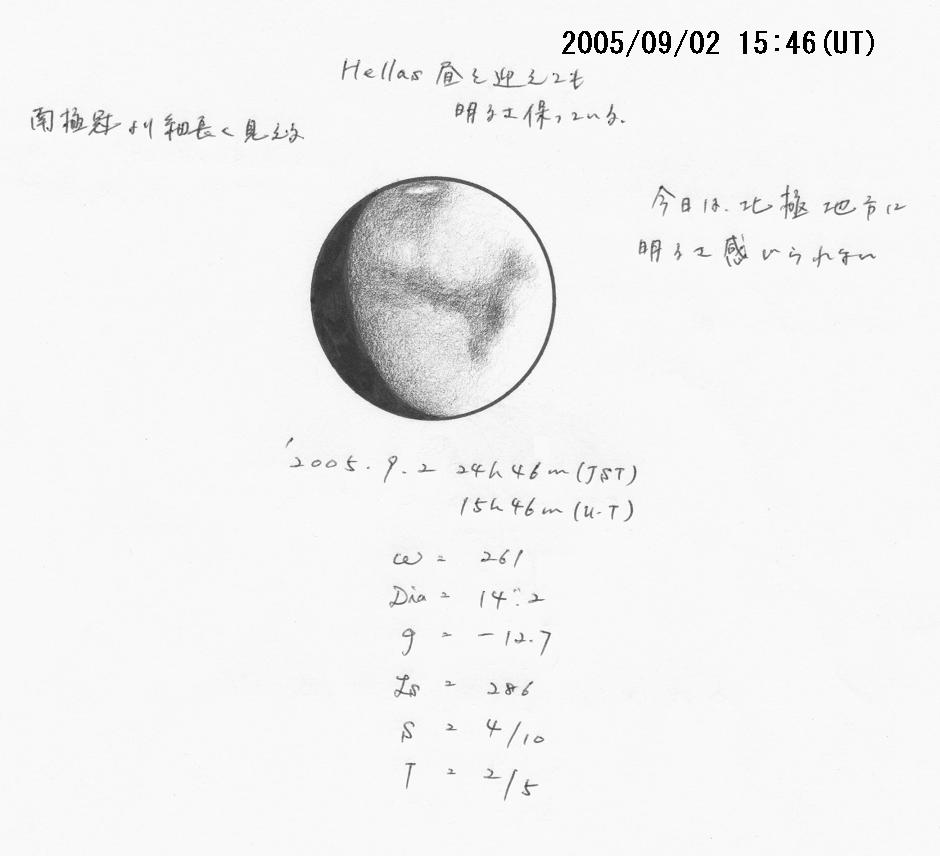 2005/09/02 15:46(UT)
Hellas 昼を迎えても
明るさ保っている.
南極冠より細長く見える
今日は、北極地方に
明るさ感じられない
'2005.9.2 24h46m(JST)
15h46m(U.T)
ω = 261
Dia = 14".2
φ = -12.7
Ls = 286
S = 4/10
T = 2/5